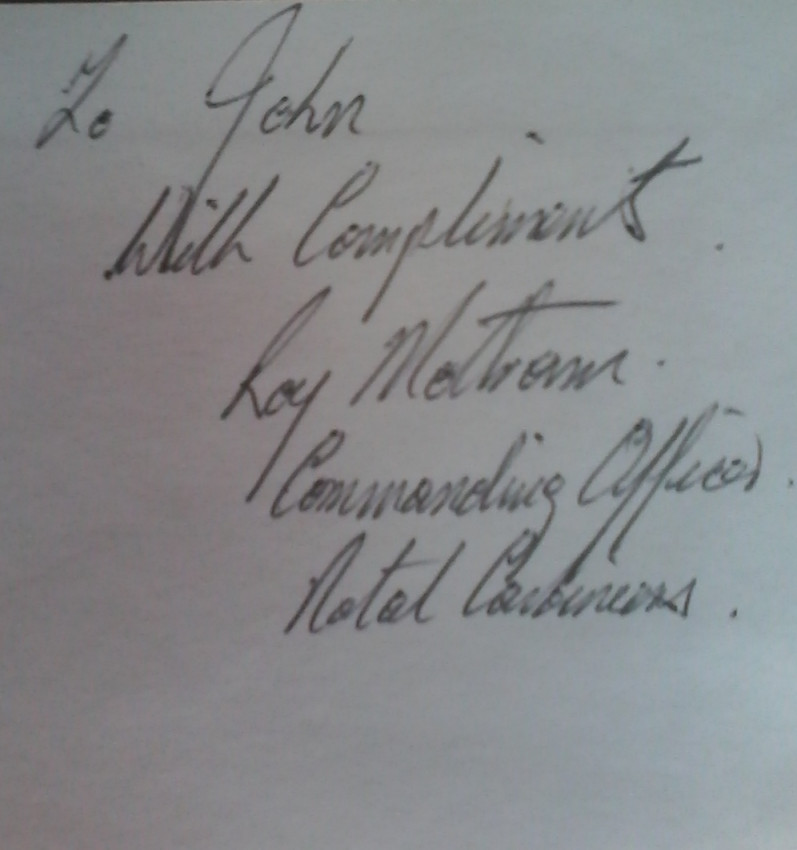 To John
With Compliments.
Roy Mottram.
Commanding Officer.
Natal Carbineers.